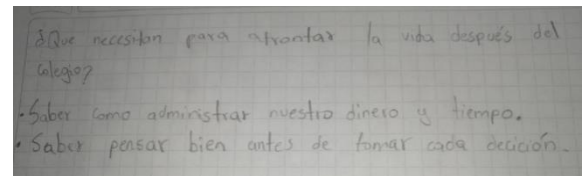 ¿Que necesitan para afrontar la vida después del
colegio?
• Saber como administrar nuestro dinero y tiempo.
• Saber pensar bien antes de tomar cada decición.